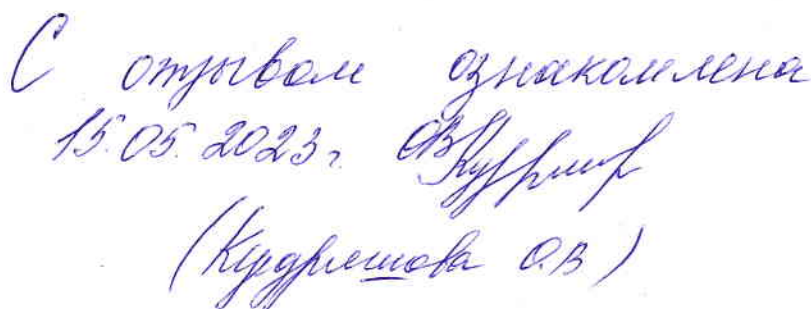 С отзывом ознакомлена
15.05.2023г.
(Кудряшова О.В)